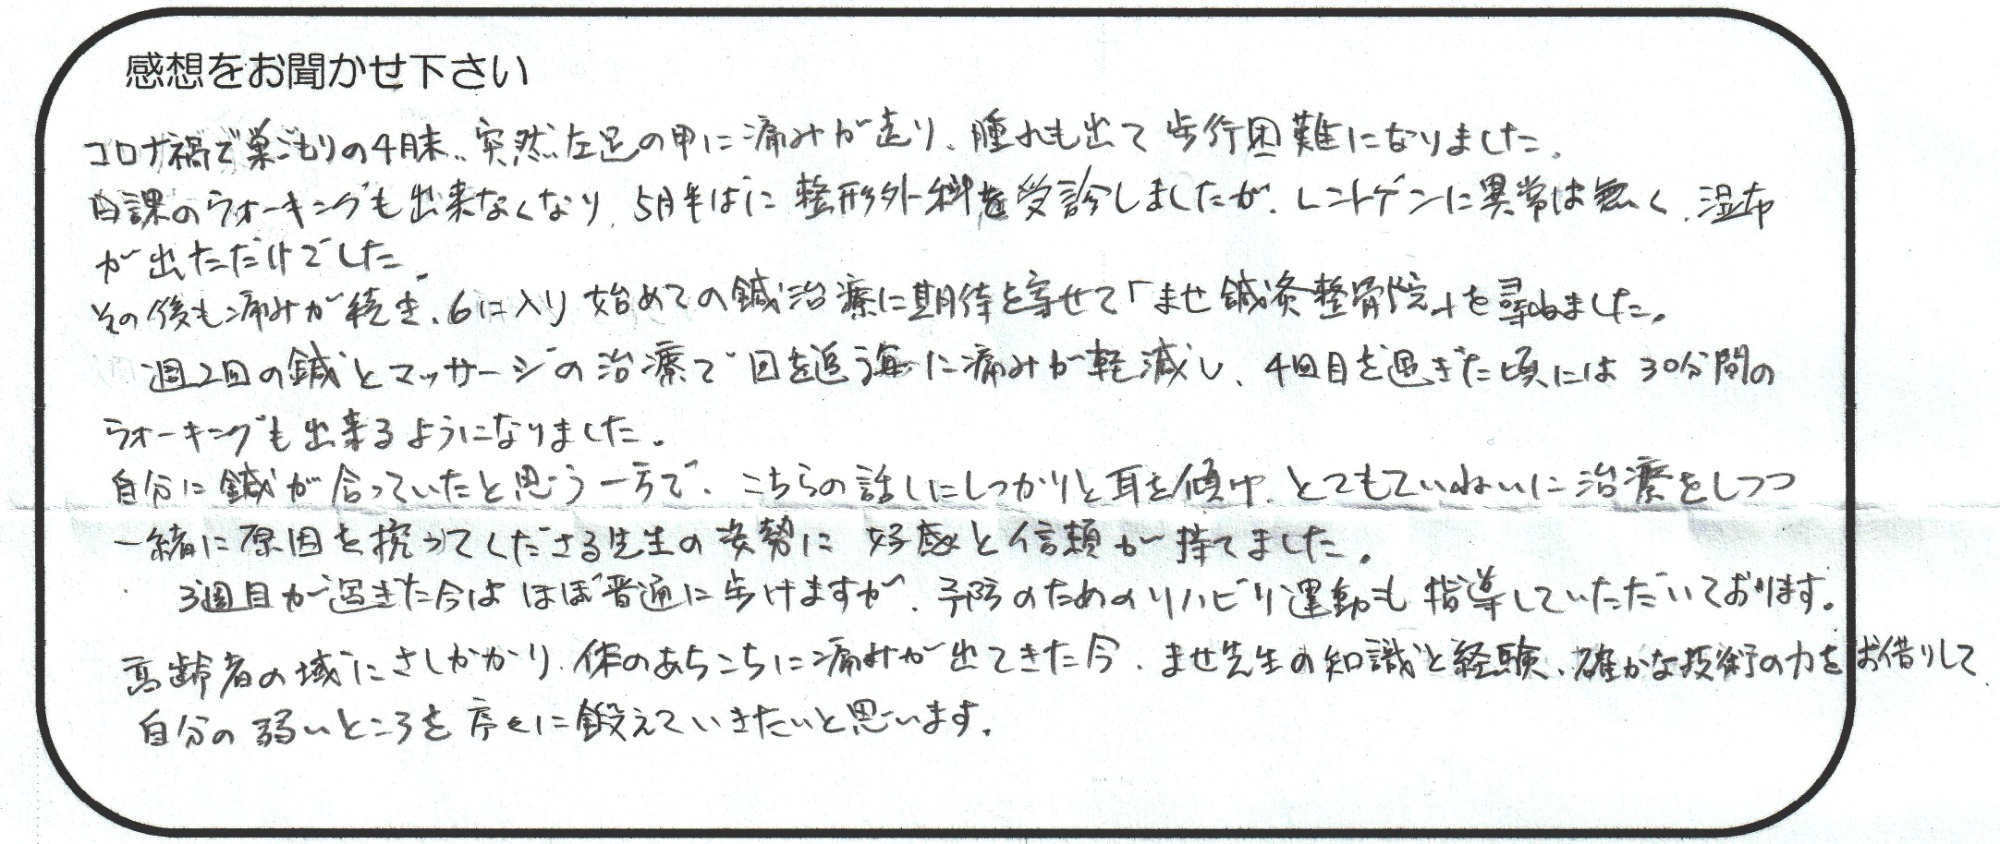 感想をお聞かせ下さい
コロナ禍で巣ごもりの4月末、突然左足の甲に痛みが走り、腫れも出て歩行困難になりました。
日課のウォーキングも出来なくなり、5月半ばに整形外科を受診しましたが、レントゲンに異常は無く、湿布
が出ただけでした。
その後も痛みが続き、6に入り始めての鍼治療に期待を寄せて「ませ鍼灸整骨院」を尋ねました。
週2回の鍼とマッサージの治療で回を追う毎に痛みが軽減し、4回目を過ぎた頃には30分間の
ウォーキングも出来るようになりました。
自分に鍼が合っていたと思う一方で、こちらの話しにしっかりと耳を傾け、とてもていねいに治療をしつつ
一緒に原因を探ってくださる先生の姿勢に好感と信頼が持てました。
3週目が過ぎた今はほぼ普通に歩けますが、予防のためのリハビリ運動も指導していただいております。
高齢者の域にさしかかり、体のあちこちに痛みが出てきた今、ませ先生の知識と経験、確かな技術の力をお借りして
自分の弱いところを序々に鍛えていきたいと思います。